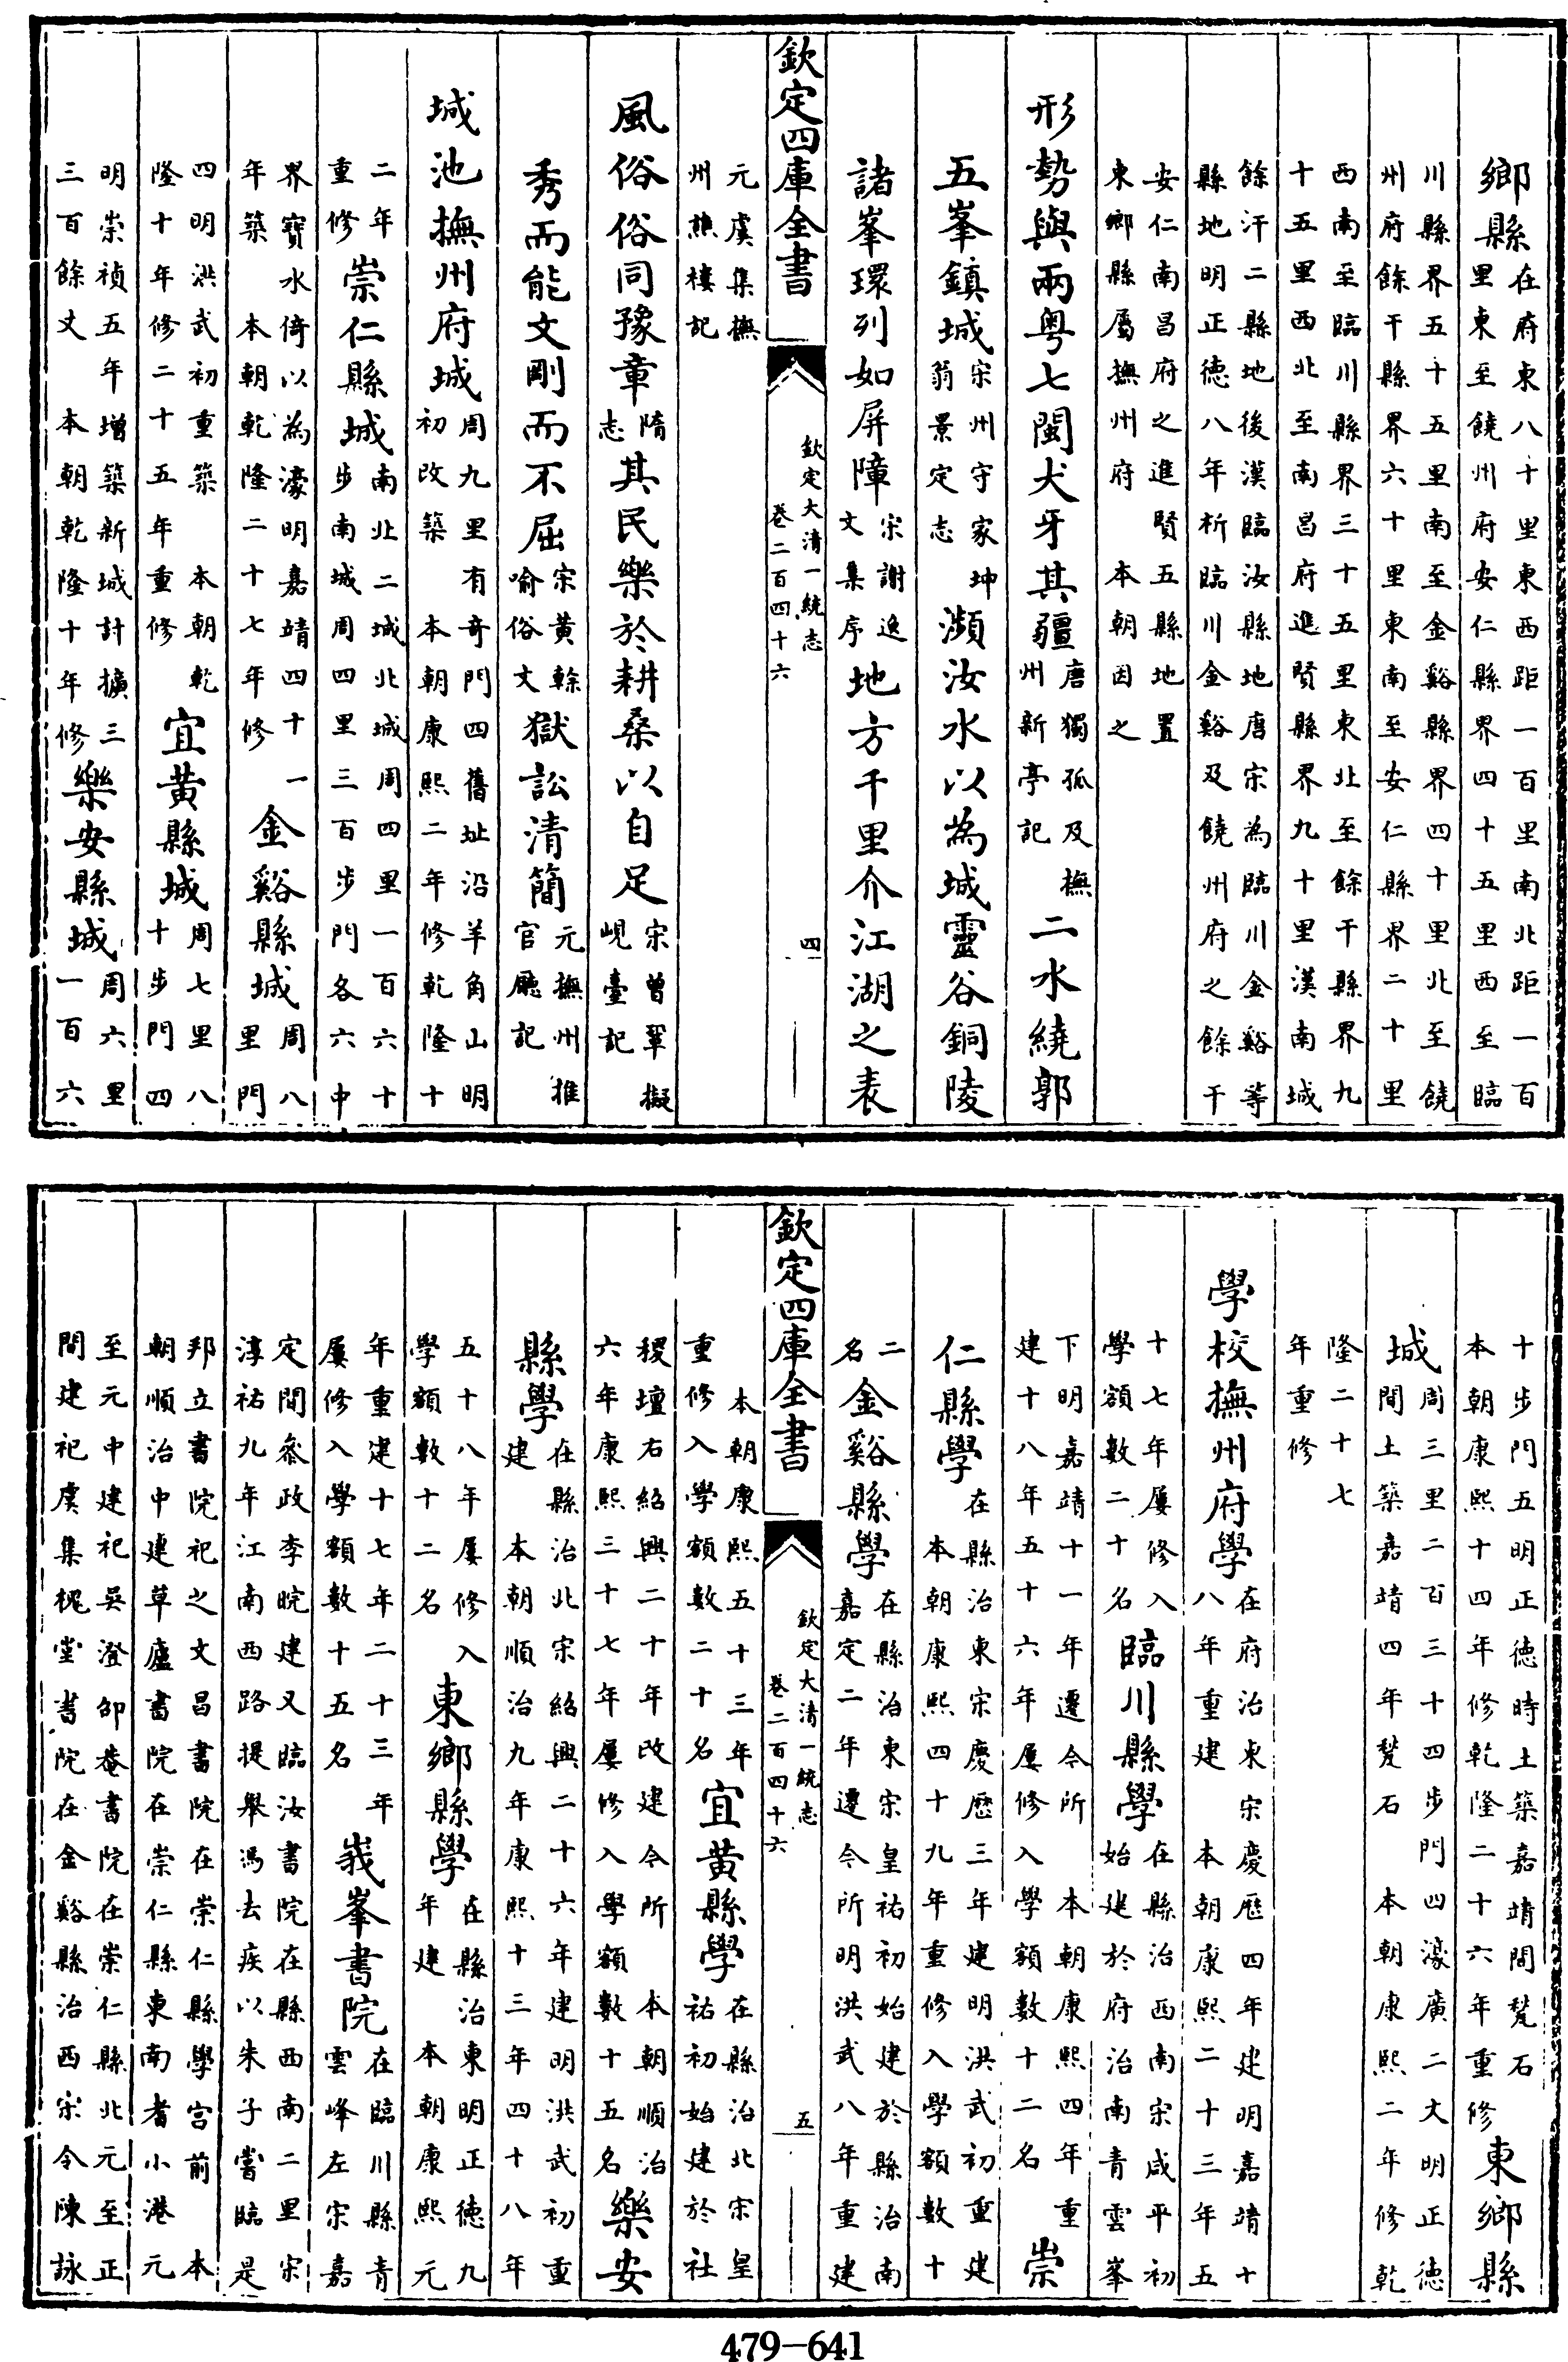 鄉縣在府東八十里東西距一百里南北距一百里東至饒州府安仁縣界四十五里西至臨
川縣界五十五里南至金谿縣界四十里北至饒州府餘干縣界六十里東南至安仁縣界二十里
西南至臨川縣界三十五里東北至餘干縣界九十五里西北至南昌府進賢縣界九十里漢南城
餘汗二縣地後漢臨汝縣地唐宋為臨川金谿等縣地明正德八年析臨川金谿及饒州府之餘干
安仁南昌府之進賢五縣地置東鄉縣屬撫州府本朝因之
形勢與兩粤七閩犬牙其疆唐獨孤及撫州新亭記二水繞郭
五峯鎮城宋州守家坤翁景定志瀕汝水以為城靈谷銅陵
諸峯環列如屏障宋謝逸文集序地方千里介江湖之表
欽定四庫全書 欽定大清一統志 卷二百四十六 四
元虞集撫州譙樓記
風俗俗同豫章隋志其民樂於耕桑以自足宋曾鞏擬峴臺記
秀而能文剛而不屈宋黃榦喻俗文獄訟清簡元撫州推官廳記
城池撫州府城周九里有奇門四舊址沿羊角山明初改築本朝康熙二年修乾隆十
二年重修崇仁縣城南北二城北城周四里一百六十步南城周四里三百步門各六中
界寶水倚以為濠明嘉靖四十一年築本朝乾隆二十七年修金谿縣城周八里門
四明洪武初重築本朝乾隆十年修二十五年重修宜黃縣城周七里八十步門四
明崇禎五年增築新城計擴三三百餘丈本朝乾隆十年修樂安縣城周六里一百六
十步門五明正德時土築嘉靖間甃石本朝康熙十四年修乾隆二十六年重修東鄉縣
城周三里二百三十四步門四濠廣二丈明正德間土築嘉靖四年甃石本朝康熙二年修乾
隆二十七年重修
學校撫州府學在府治東宋慶厯四年建明嘉靖十八年重建本朝康熙二十三年五
十七年屢修入學額數二十名臨川縣學在縣治西南宋咸平初始建於府治南青雲峯
下明嘉靖十一年遷今所本朝康熙四年重建十八年五十六年屢修入學額數十二名崇
仁縣學在縣治東宋慶歷三年建明洪武初重建本朝康熙四十九年重修入學額數十
二名金谿縣學在縣治東宋皇祐初始建於縣治南嘉定二年遷今所明洪武八年重建
欽定四庫全書 欽定大清一統志 卷二百四十六 五
本朝康熙五十三年重修入學額數二十名宜黃縣學在縣治北宋皇祐初始建於社
稷壇右紹興二十年改建今所本朝順治六年康熙三十七年屢修入學額數十五名樂安
縣學在縣治北宋紹興二十六年建明洪武初重建本朝順治九年康熙十三年四十八年
五十八年屢修入學額數十二名東鄉縣學在縣治東明正德九年建本朝康熙元
年重建十七年二十三年屢修入學額數十五名峩峯書院在臨川縣青雲峰左宋嘉
定間叅政李晥建又臨汝書院在縣西南二里宋淳祐九年江南西路提舉馮去疾以朱子嘗臨是
邦立書院祀之文昌書院在崇仁縣學宫前本朝順治中建草廬書院在崇仁縣東南者小港元
至元中建祀吳澄邵菴書院在崇仁縣北元至正間建祀虞集槐堂書院在金谿縣治西宋令陳詠
479-641